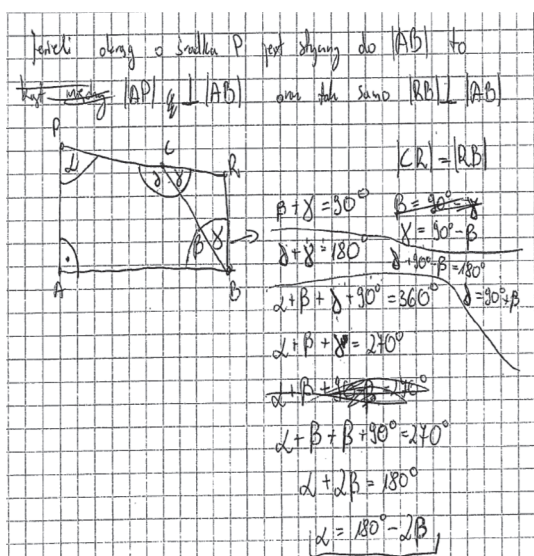 Jeżeli okrąg o środku P jest styczny do |AB| to
|AP| ⊥ |AB| oraz tak samo |RB| ⊥ |AB|
|CR| = |RB|
P
C
R
α
δ
γ
β
γ
A
B
β + γ = 90°
β = 90° - γ
γ = 90° - β
δ + γ = 180°
δ + 90° - β = 180°
α + β + δ + 90° = 360°
δ = 90° + β
α + β + δ = 270°
α + β + 90 - β = 270°
α + β + β + 90° = 270°
α + 2β = 180°
α = 180° - 2β